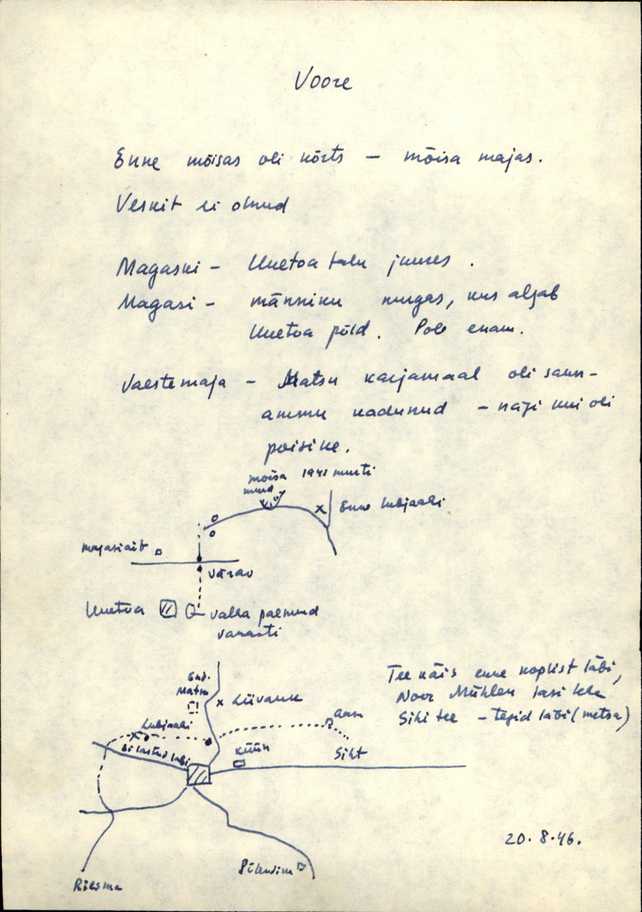 Voore
Enne mõisas oli kõrts – mõisa majas.
Veskit ei olnud
Magaski – Uuetoa talu juures.
Magasi – männiku nurgas, kus algab
Uuetoa põld. Pole enam.
Vaestemaja – Matsu karjamaal oli saun –
ammu kadunud – nägi kui oli
poisike.
mõisa 1941 murti
Enne lubjaahi
magasiait
värav
Uuetoa
valla palmud
vanasti
End.
Matsu
Liivauk
Lubjaahi
aam
küün
Siht
Tee käis enne koplist läbi,
Noor Mühlen lasi teha
Sihi tee – tegid läbi (metsa)
Riisma
20.8.46.